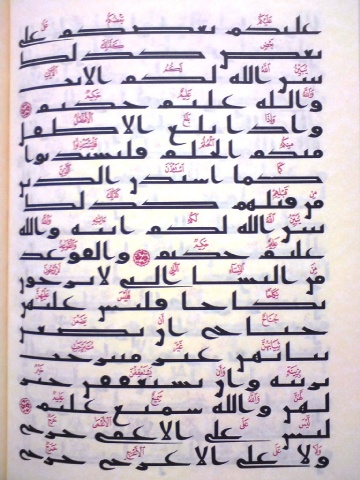 عليكم بعضكم على
بعض كذلك
يبين الله لكم الايت
والله عليم حكيم
واذا بلغ الاطفل
منكم الحلم فليستذنوا
كما استذن الذين
من قبلهم كذلك
يبين الله لكم ايته والله
عليم حكيم والقوعد
من النسا التي لا يرجون
نكاحا فليس عليهن
جناح ان يضعن
ثيابهن غير متبرجت
بزينة وان يستعففن خير
لهن والله سميع عليم
ليس على الاعمى حرج
ولا على الاعرج حرج